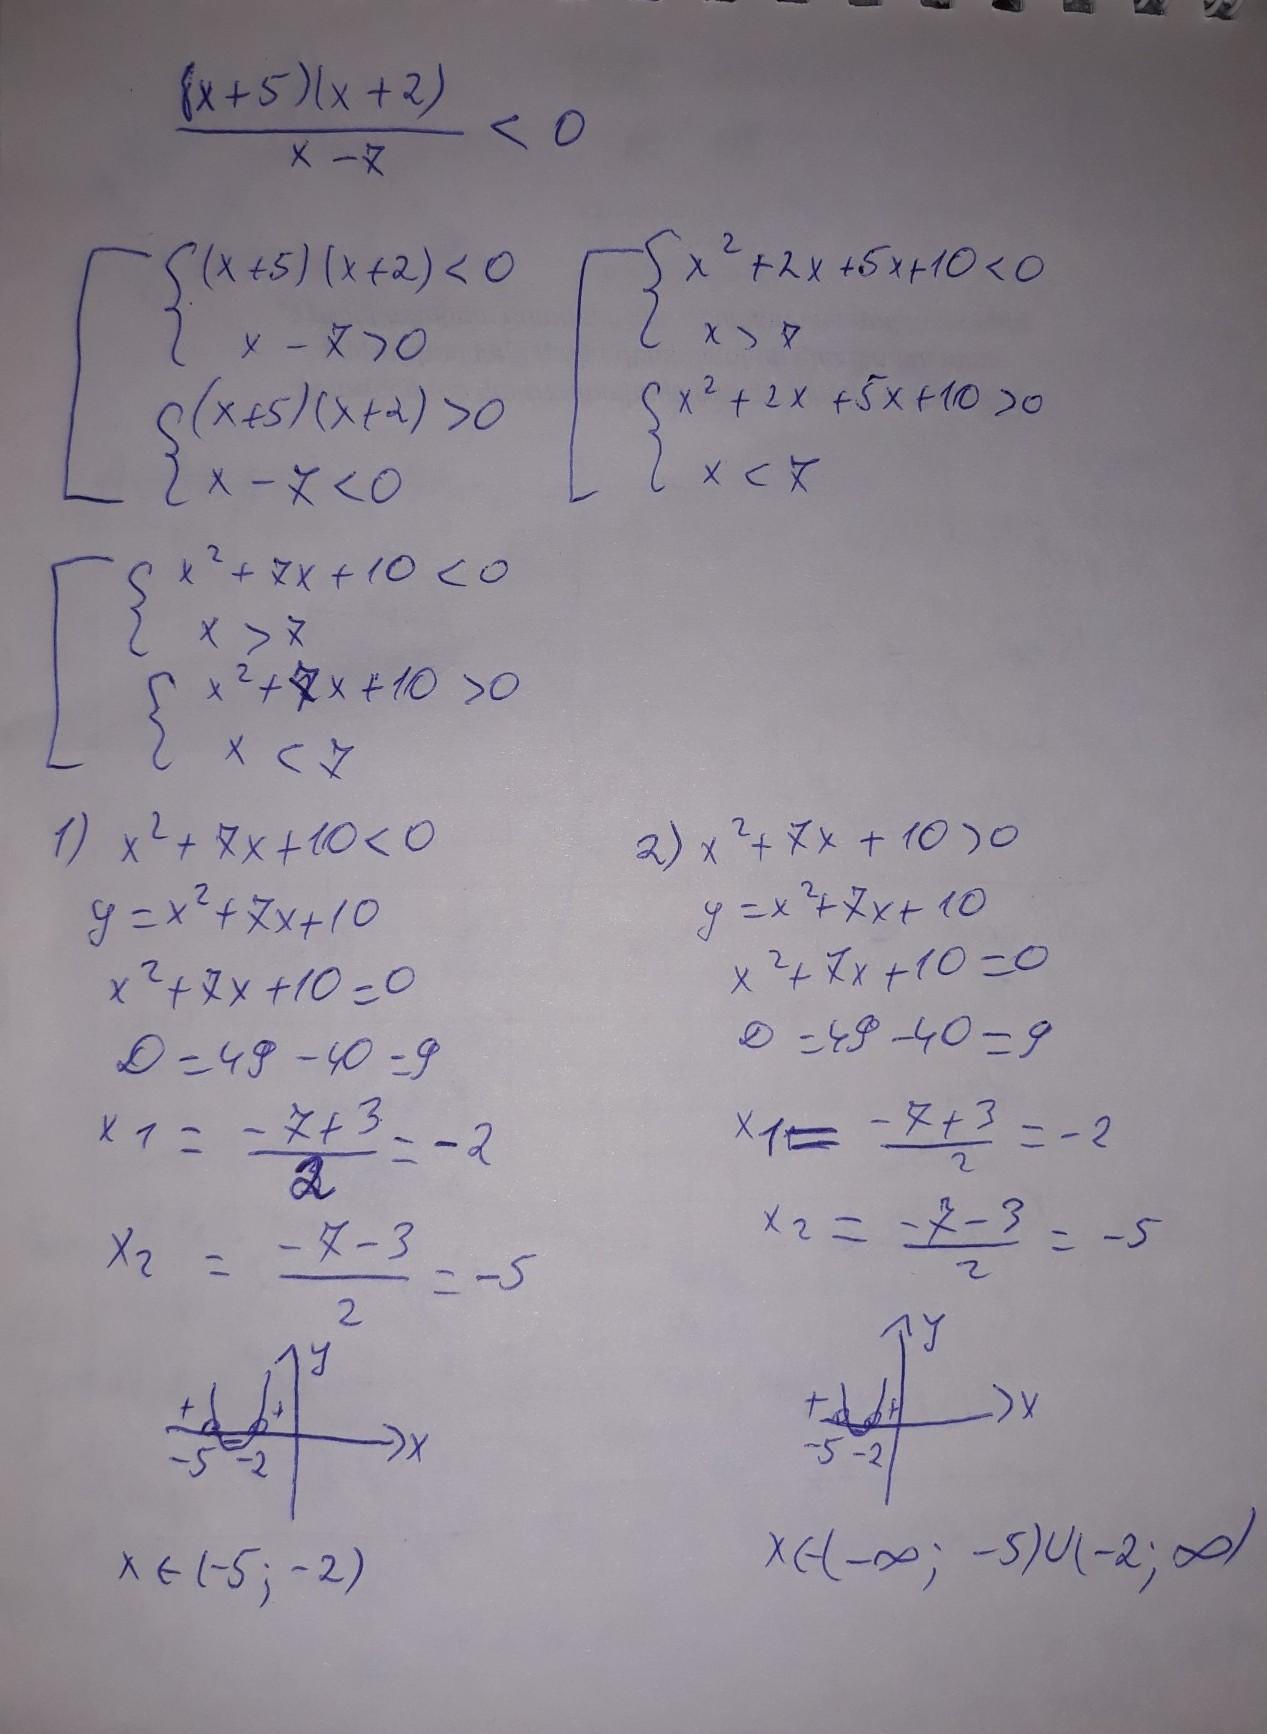 (x+5)(x+2)
x-7
< 0
(x+5)(x+2)<0
x-7>0
(x+5)(x+2)>0
x-7<0
x²+2x+5x+10<0
x>7
x²+2x+5x+10>0
x<7
x²+7x+10<0
x>7
x²+7x+10>0
x<7
1) x²+7x+10<0
y=x²+7x+10
x²+7x+10=0
D=49-40=9
x1 = (-7+3)/2 = -2
x2 = (-7-3)/2 = -5
+ + y
-5 -2 x
x∈(-5;-2)
2) x²+7x+10>0
y=x²+7x+10
x²+7x+10=0
D=49-40=9
x1 = (-7+3)/2 = -2
x2 = (-7-3)/2 = -5
+ + y
-5 -2 x
x∈(-∞; -5)∪(-2; ∞)